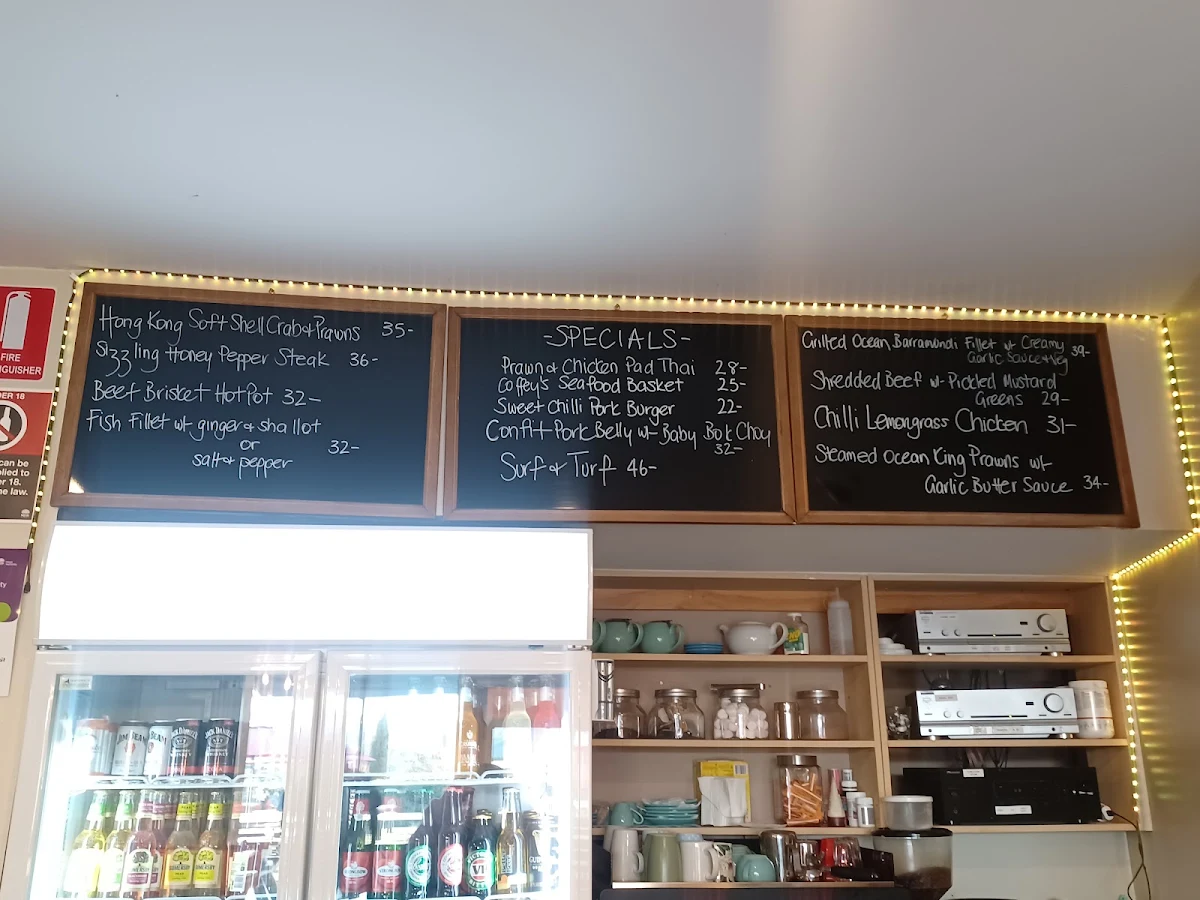 Hong Kong Soft Shell Crab & Prawns 35-
Sizzling Honey Pepper Steak 36-
Beef Brisket Hot Pot 32-
Fish Fillet w+ ginger & shallot
or 32-
salt & pepper
-SPECIALS-
Prawn & Chicken Pad Thai 28-
Coffey's Seafood Basket 25-
Sweet Chilli Pork Burger 22-
Confit Pork Belly w+ Baby Bok Choy
32-
Surf & Turf 46-
Grilled Ocean Barramundi Fillet w+ Creamy
Garlic Sauce & veg 39-
Shredded Beef w+ Pickled Mustard
Greens 29-
Chilli Lemongrass Chicken 31-
Steamed Ocean King Prawns w+
Garlic Butter Sauce 34-
FIRE
JIM BEAM
JACK DANIEL'S
SOMERSBY
SOMERSBY
VB